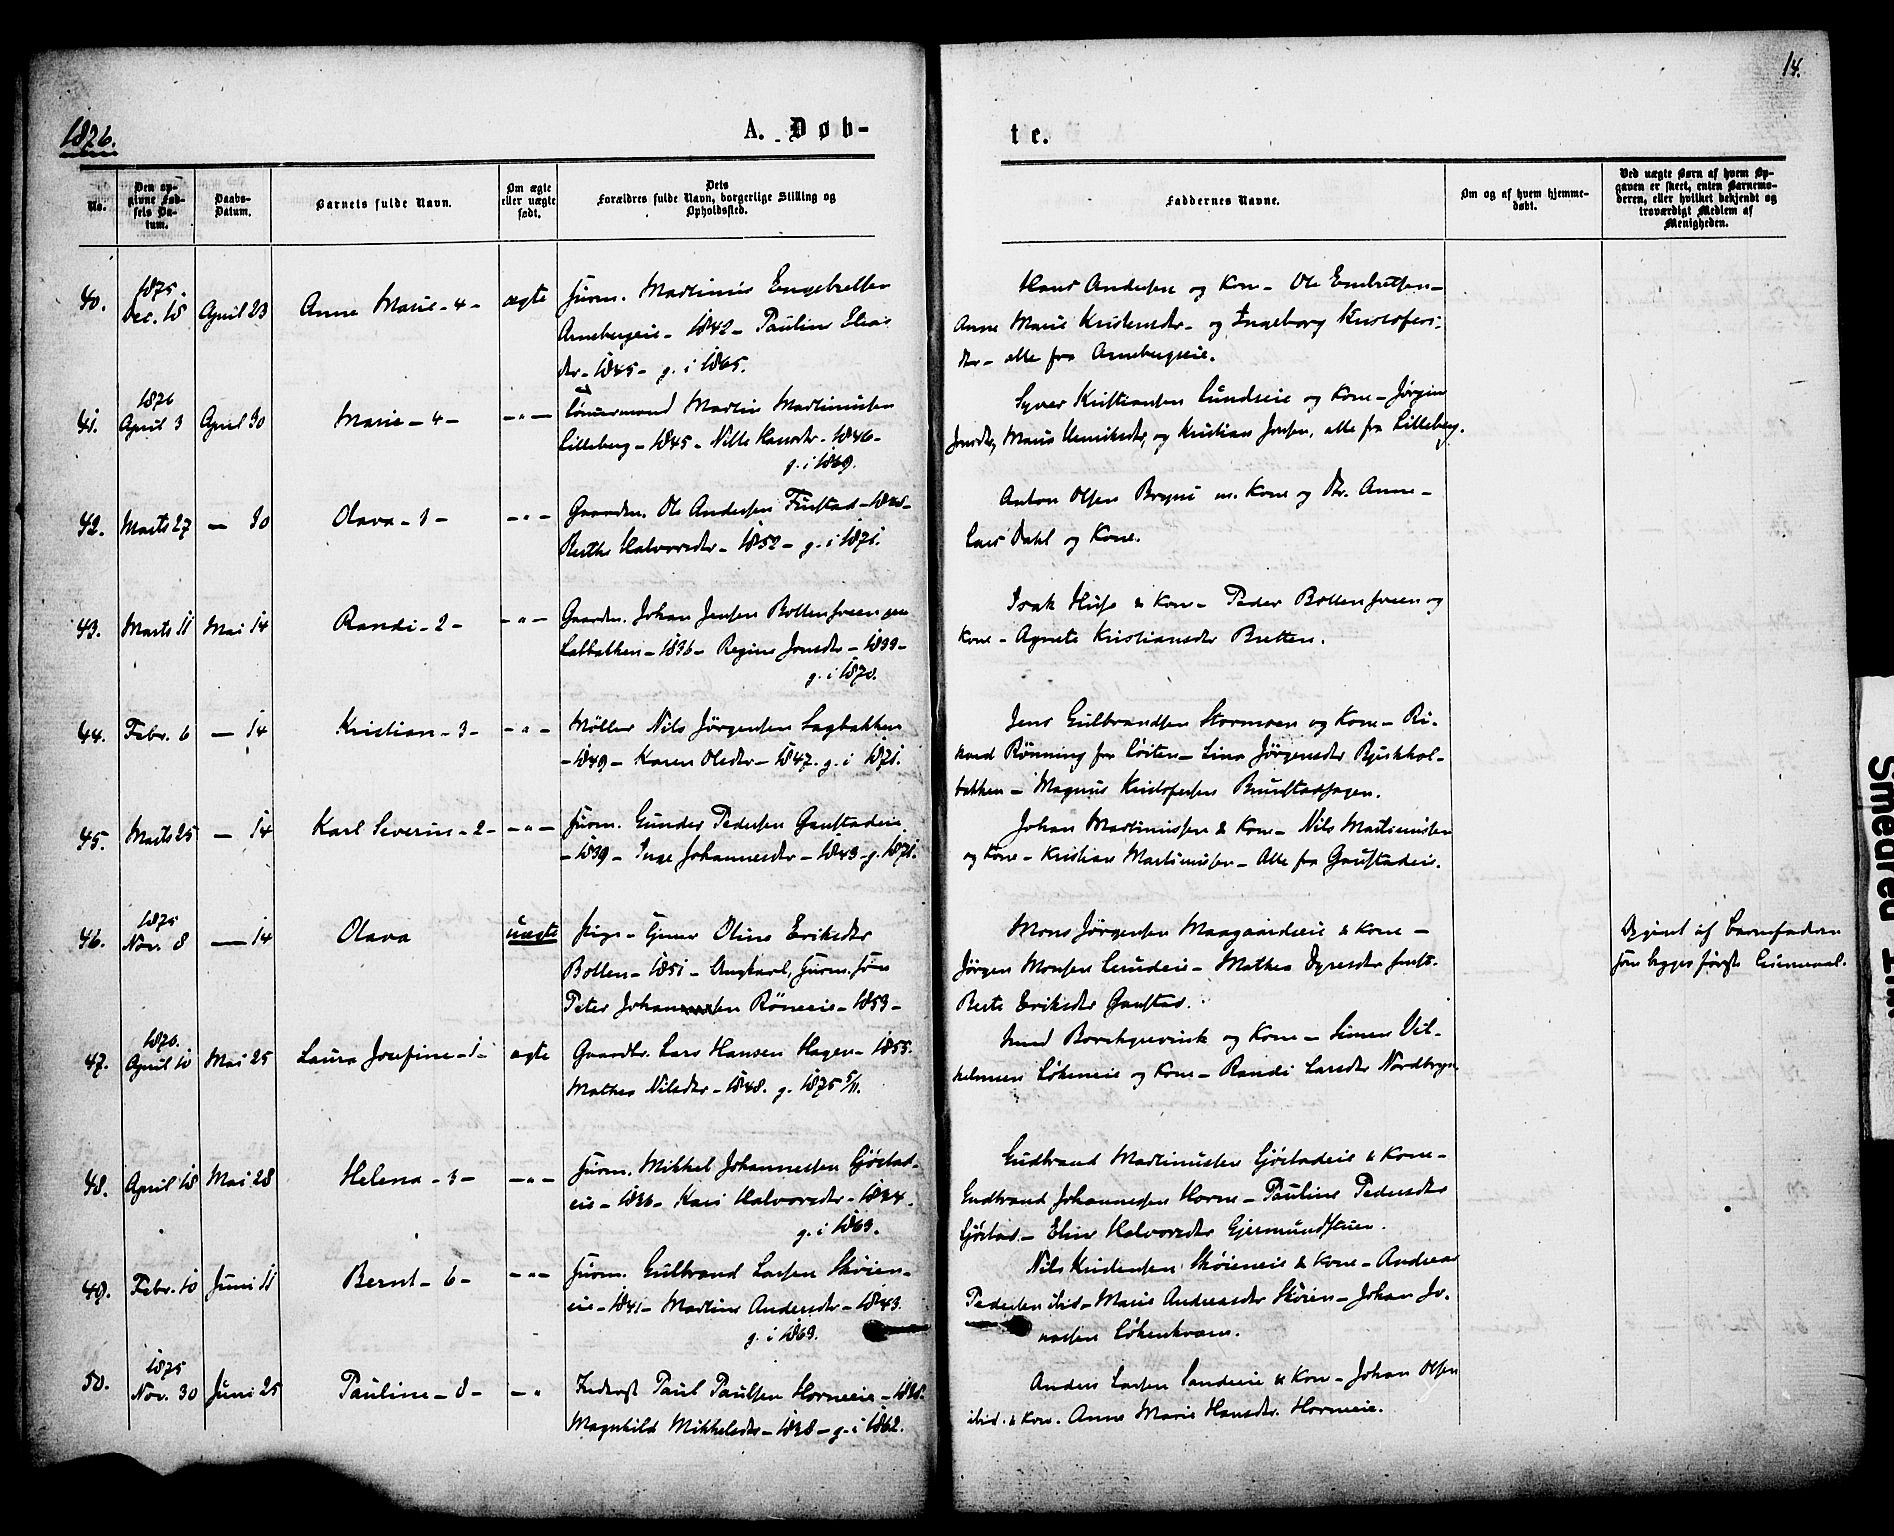 14.
1876.
A. Døb-
te.
No.
Den op-
givne Fød-
sels Da-
tum.
Daabs-
Datum.
Barnets fulde Navn.
Om ægte
eller uægte
født.
Dets
Forældres fulde Navn, borgerlige Stilling og
Opholdssted.
Faddernes Navne.
Om og af hvem hjemme-
døbt.
Ved uægte Børn af hvem Op-
gaven er skeet, enten Barnemo-
deren, eller hvilket bekjendt og
troværdigt Medlem af
Menigheden.
40.
1875.
Dec. 18
April 23
Anne Marie - 4 -
ægte
Husm. Martinus Engebretsen
Arnebergeie - 1842 - Pauline Elias
dtr - 1845 - g. i 1865.
Hans Andersen og Kone - Ole Embretsen -
Anne Marie Kristensdtr - og Ingeborg Kristofers-
dtr - alle fra Arnebergseie.
41.
1876
April 3
April 30
Marie - 4 -
- " -
Martin Martinussen
Lilleberg - 1845 - Nille Hansdtr - 1846 -
g. i 1869.
Syver Kristiansen Lundseie og Kone - Jørgin
Jensdtr, Maria Henriksdtr, og Kristian Jensen, alle fra Lilleberg.
42.
Marts 27
- 30
Olava - 3 -
- " -
Gaardm. Ole Andersen
Berthe Halvorsdtr - 1852 - g. i 1871.
Anton Olsen Bryni m. Kone og Dtr. Anne -
Lars Dahl og Kone.
43.
Marts 11
Mai 14
Randi - 2 -
- " -
Gaardm. Johan Jensen
- 1836 - Regine Jonsdtr - 1839 -
g. i 1870.
Isak & Kone - Peder og
Kone - Agnete Kristiansdtr Bretten.
44.
Febr. 6
- 14
Kristian - 3 -
- " -
Møller Nils Jørgensen Sagbakken
- 1849 - Karen Olsdtr - 1847. g. i 1871.
Jens Gulbrandsen Stormoen og Kone - Ri-
kard Rønning fra Løiten - Lina Jørgensdtr
bakken - Magnus Kristofersen
45.
Marts 25
- 14
Karl Severin - 2 -
- " -
Husm. Gunder Pedersen Gaustadeie
- 1839 - Inge Johannesdtr - 1843 - g. 1871.
Johan Martinussen & Kone - Nils Martinussen
og Kone - Kristian Martinussen - Alle fra Gaustadeie.
46.
1875
Nov. 8
- 14
Olava
uægte
Pige - Oline Eriksdtr
Bollen - 1851 - Ungkarl, Husm. Søn
Peter Johansen Röneeie - 1853 -
Mons Jørgensen & Kone -
Jørgen Monsen - Mathea
Berte Eriksdtr Gaustad.
Opgivet af Barnefaderen
47.
1876.
April 10
Mai 25
Laura Josefine - 1 -
ægte
Gaardbr. Lars Hansen Hagen - 1855.
Mathea Nilsdtr - 1848. g. 1875 5/11.
Borchgrevink og Kone - Simen Vil-
helmsen Løkeneie og Kone - Randi Larsdtr Nordbryn
48.
April 18
Mai 28
Helena - 3 -
- " -
Husm. Mikkel Johannessen Gjörstad-
eie - 1836 - Kari Halvorsdtr - 1834 -
g. i 1863.
Gudbrand Martinussen Gjörstadeie & Kone -
Gudbrand Johannessen Horne - Pauline Pedersdtr
Gjörstad - Eline Halvorsdtr Gjermundstuen.
49.
Febr. 10
Juni 11
Bernt - 6 -
- " -
Husm. Gulbrand Larsen Skøien-
eie - 1841 - Martine Andersdtr - 1843
g. i 1863.
Nils Kristensen Skøieneie & Kone - Andreas
Pedersen ibid - Marie Andreasdtr Skøien - Johan Jo-
nassen
50.
1875
Nov. 30
Juni 25
Pauline - 8 -
- "
Inderst Paul Paulsen Horneeie - 1838.
Magnhild Mikkelsdtr - 1838 - g. i 1862.
Anders Larsen Sandeeie & Kone - Johan Olsen
ibid. & Kone. Anne Marie Hansdtr. Horneeie.